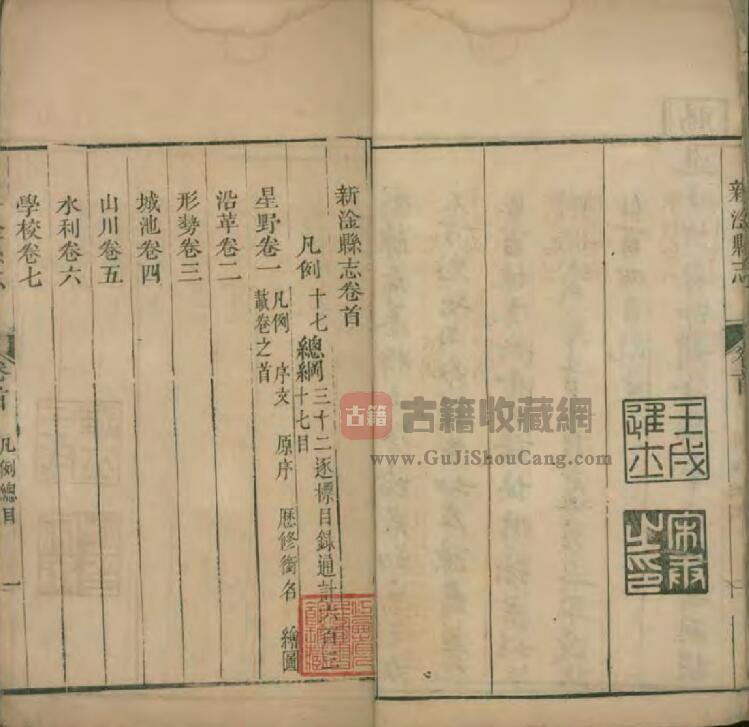 新淦縣志
卷首
壬戌進士
新淦縣志卷首
凡例十七 總綱三十二逐標目錄通計六百三
十七目
星野卷一 凡例 序文 原序 歷修銜名 繪圖
載卷之首
沿革卷二
形勢卷三
城池卷四
山川卷五
水利卷六
學校卷七
卷首 凡例總目 一
古籍 古籍收藏網
www.GuJiShouCang.com